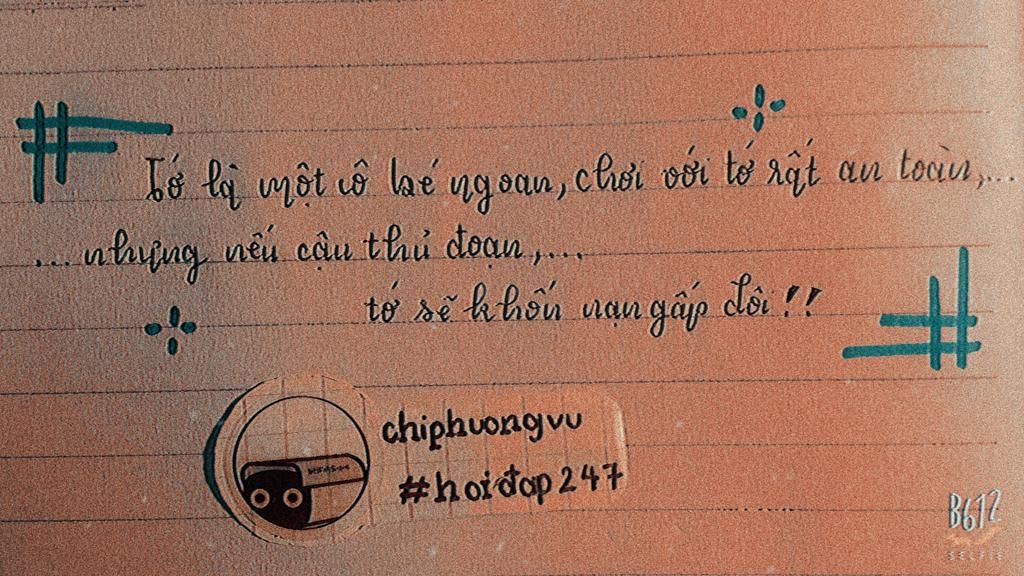 Tớ là một cô bé ngoan, chơi với tớ rất an toàn,...
... nhưng nếu cậu thủ đoạn,...
tớ sẽ khốn nạn gấp đôi!!
chiphuongvu
#hoiđap247
B612
SELFIE